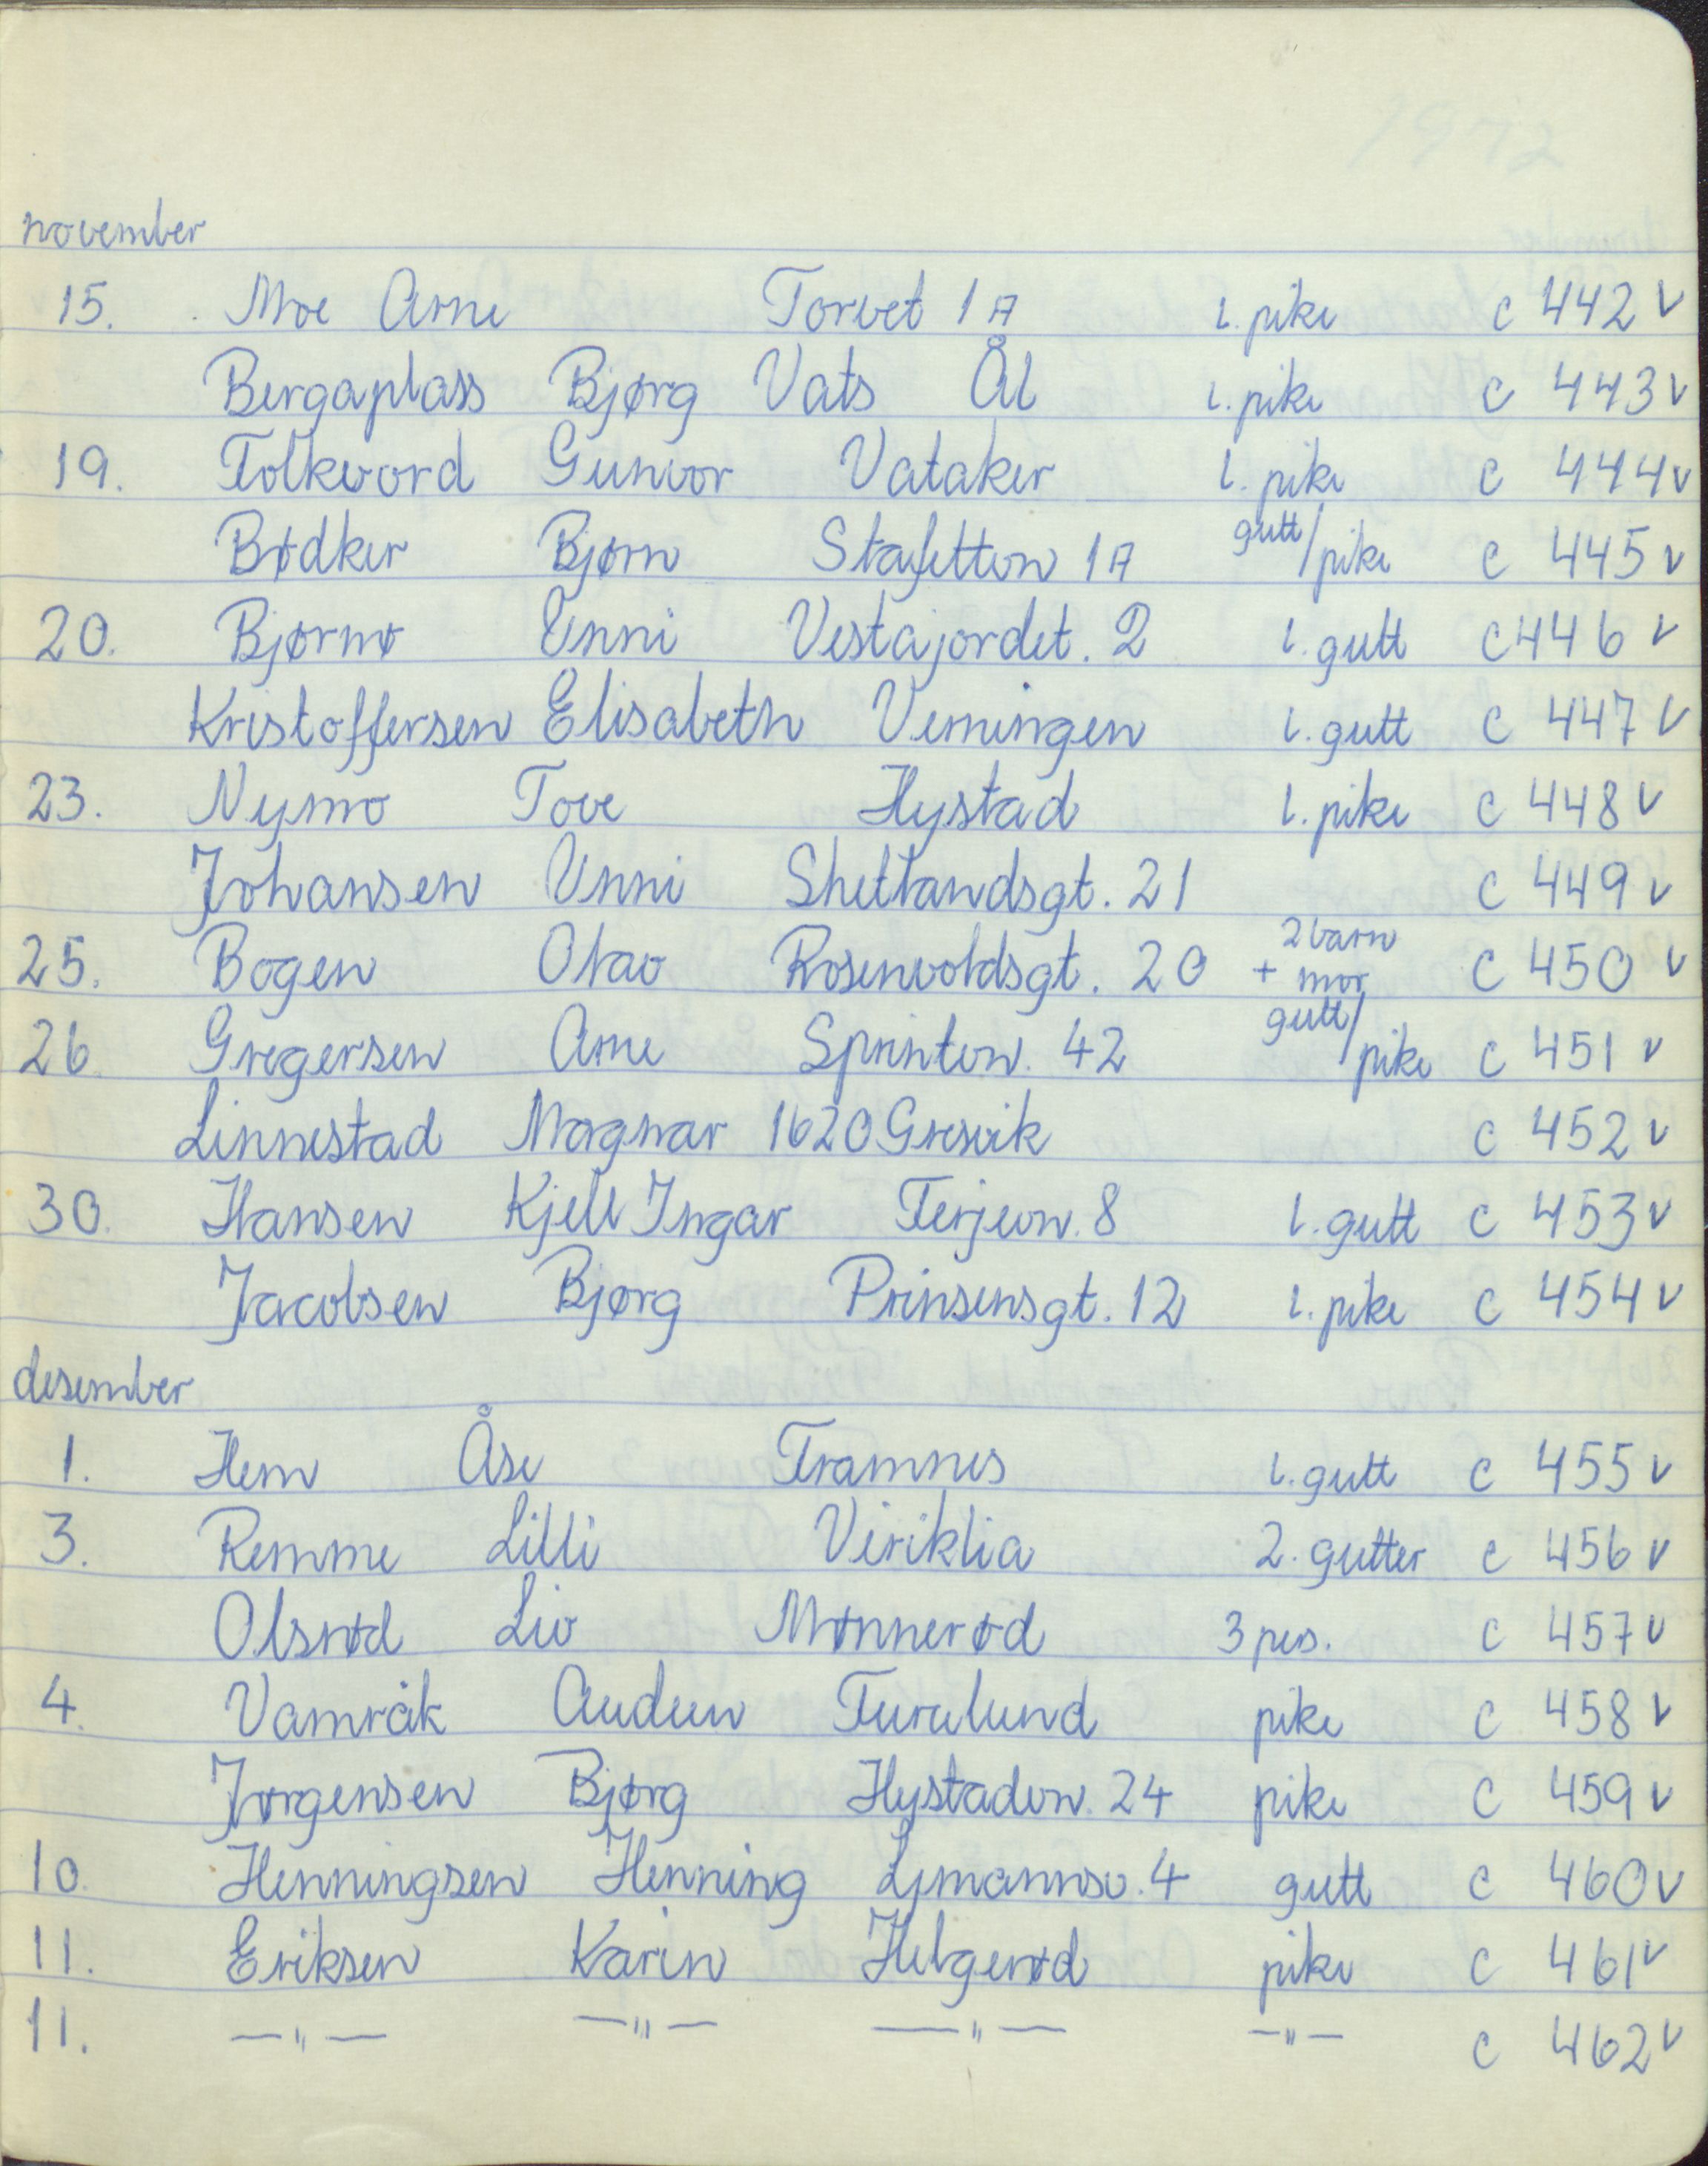 1972
november
15. Moe Arne Torvet 1A 1. pike C 442 v
Bergaplass Bjørg Vats Ål 1. pike C 443 v
19. Folkvord Gunvor Vataker 1. pike C 444 v
Bødker Bjørn Stafettvn 1A gutt/pike C 445 v
20. Bjørnø Unni Vestajordet. 2 1. gutt C 446 v
Kristoffersen Elisabeth Verningen 1. gutt C 447 v
23. Nymo Tove Hystad 1. pike C 448 v
Johansen Unni Shetlandsgt. 21 C 449 v
25. Bogen Olav Rosenvoldsgt. 20 2 barn + mor C 450 v
26. Gregersen Arne Sprintvn. 42 gutt/pike C 451 v
Linnestad Magnar 1620 Gresvik C 452 v
30. Hansen Kjell Ingar Terjevn. 8 1. gutt C 453 v
Jacobsen Bjørg Prinsensgt. 12 1. pike C 454 v
desember
1. Hem Åse Framnes 1. gutt C 455 v
3. Remme Lilli Viriklia 2. gutter C 456 v
Olsrød Liv Mønnerød 3 pers. C 457 v
4. Vamråk Audun Furulund pike C 458 v
Jørgensen Bjørg Hystadvn. 24 pike C 459 v
10. Henningsen Henning Lymannsv. 4 gutt C 460 v
11. Eriksen Karin Helgerød pike C 461 v
11. —"— —"— —"— —"— C 462 v